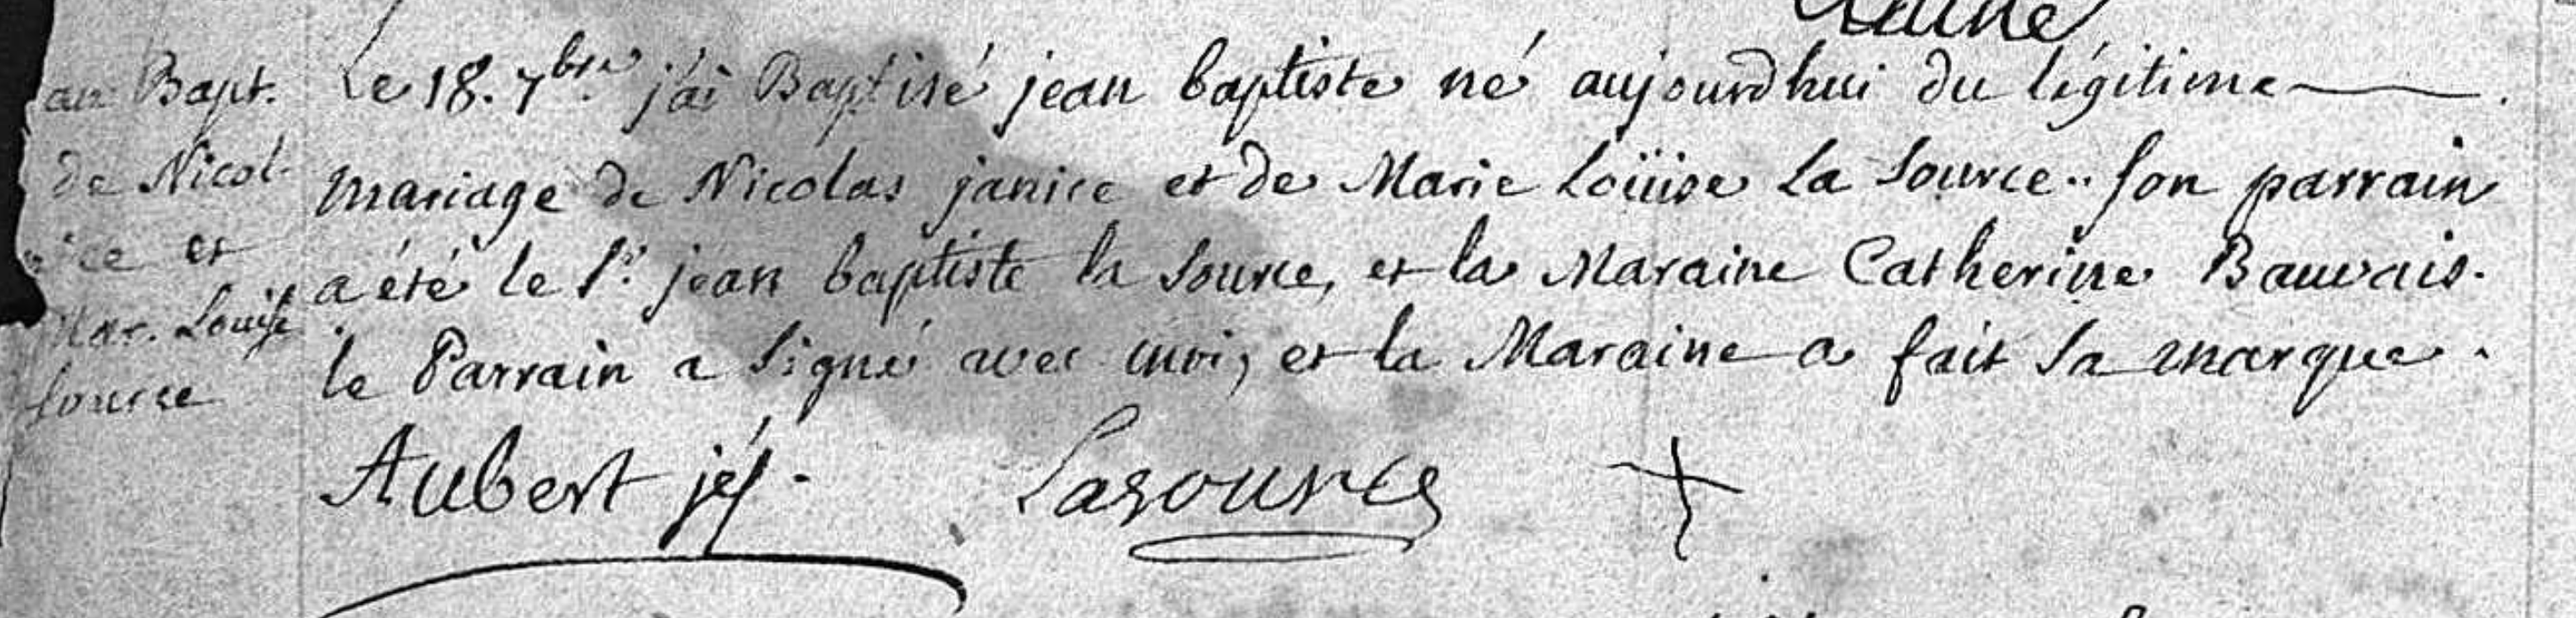 Le 18. 7bre j'ai Baptisé jean baptiste né aujourdhui du légitime
mariage de Nicolas janice et de Marie Loüise La Source.. son parrain
a été le Sr. jean baptiste la Source, et la Maraine Catherine Bauvais.
le Parrain a signé avec moi, et la Maraine a fait sa marque.
Aubert jés. Lasource +
Bapt.
de Nicol-
ce et
Mar. Louise
source